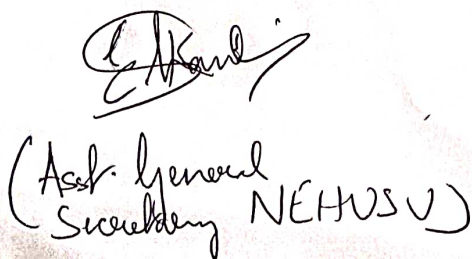 (Asst. General
Secretary NEHUSU)